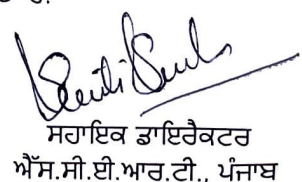 ਸਹਾਇਕ ਡਾਇਰੈਕਟਰ
ਐੱਸ.ਸੀ.ਈ.ਆਰ.ਟੀ., ਪੰਜਾਬ